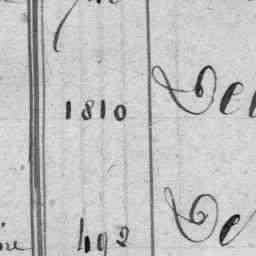 1810 Del
492 De